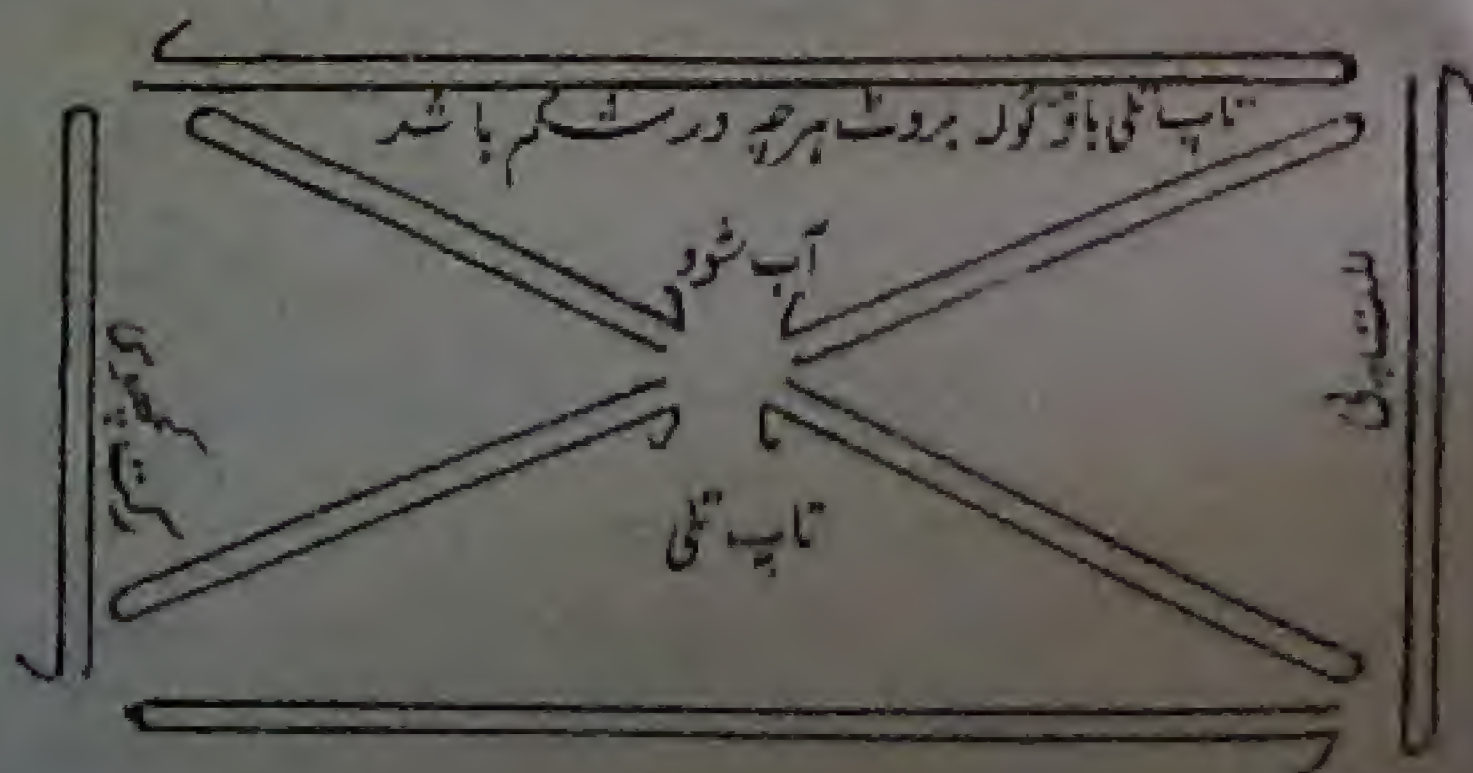 تاپ تلی باؤ گولہ بروٹ ہرچہ در شکم باشد
آب شود
تاپ تلی